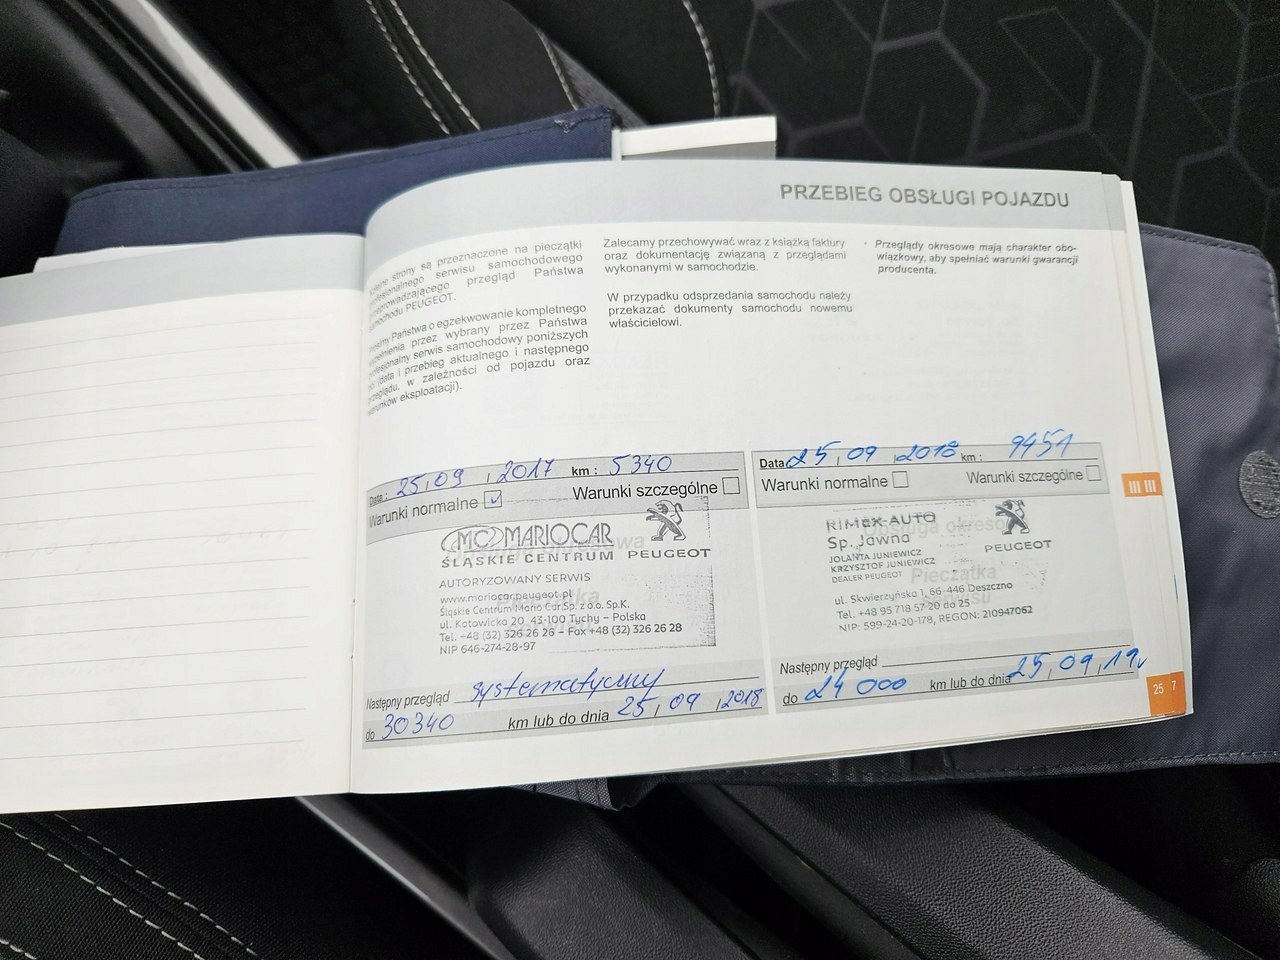 PRZEBIEG OBSŁUGI POJAZDU
strony są przeznaczone na pieczątki
serwisu samochodowego
przegląd Państwa
samochodu PEUGEOT.
Państwa o egzekwowanie kompletnego
przez wybrany przez Państwa
serwis samochodowy poniższych
(data i przebieg aktualnego i następnego
przeglądu, w zależności od pojazdu oraz
warunków eksploatacji).
Zalecamy przechowywać wraz z książką faktury
oraz dokumentację związaną z przeglądami
wykonanymi w samochodzie.
W przypadku odsprzedania samochodu należy
przekazać dokumenty samochodu nowemu
właścicielowi.
Przeglądy okresowe mają charakter obo-
wiązkowy, aby spełniać warunki gwarancji
producenta.
Data: 25,09,2017 km: 5340
Warunki normalne Warunki szczególne
MC MARIOCAR
ŚLĄSKIE CENTRUM PEUGEOT
AUTORYZOWANY SERWIS
www.mariocar.peugeot.pl
Śląskie Centrum Mario Car Sp. z o.o. Sp.K.
ul. Katowicka 20, 43-100 Tychy – Polska
Tel. +48 (32) 326 26 26 – Fax +48 (32) 326 26 28
NIP 646-274-28-97
Następny przegląd systematyczny
do 30340 km lub do dnia 25,09,2018
Data 25,09,2018 km: 9451
Warunki normalne Warunki szczególne
RIMEX-AUTO
Sp. Jawna
JOLANTA JUNIEWICZ
KRZYSZTOF JUNIEWICZ
DEALER PEUGEOT
PEUGEOT
Pieczątka
ul. Skwierzyńska 1, 66-446 Deszczno
Tel. +48 95 718 57 20 do 25
NIP: 599-24-20-178, REGON: 210947062
Następny przegląd
do 24 000 km lub do dnia 25,09,19r
25 7